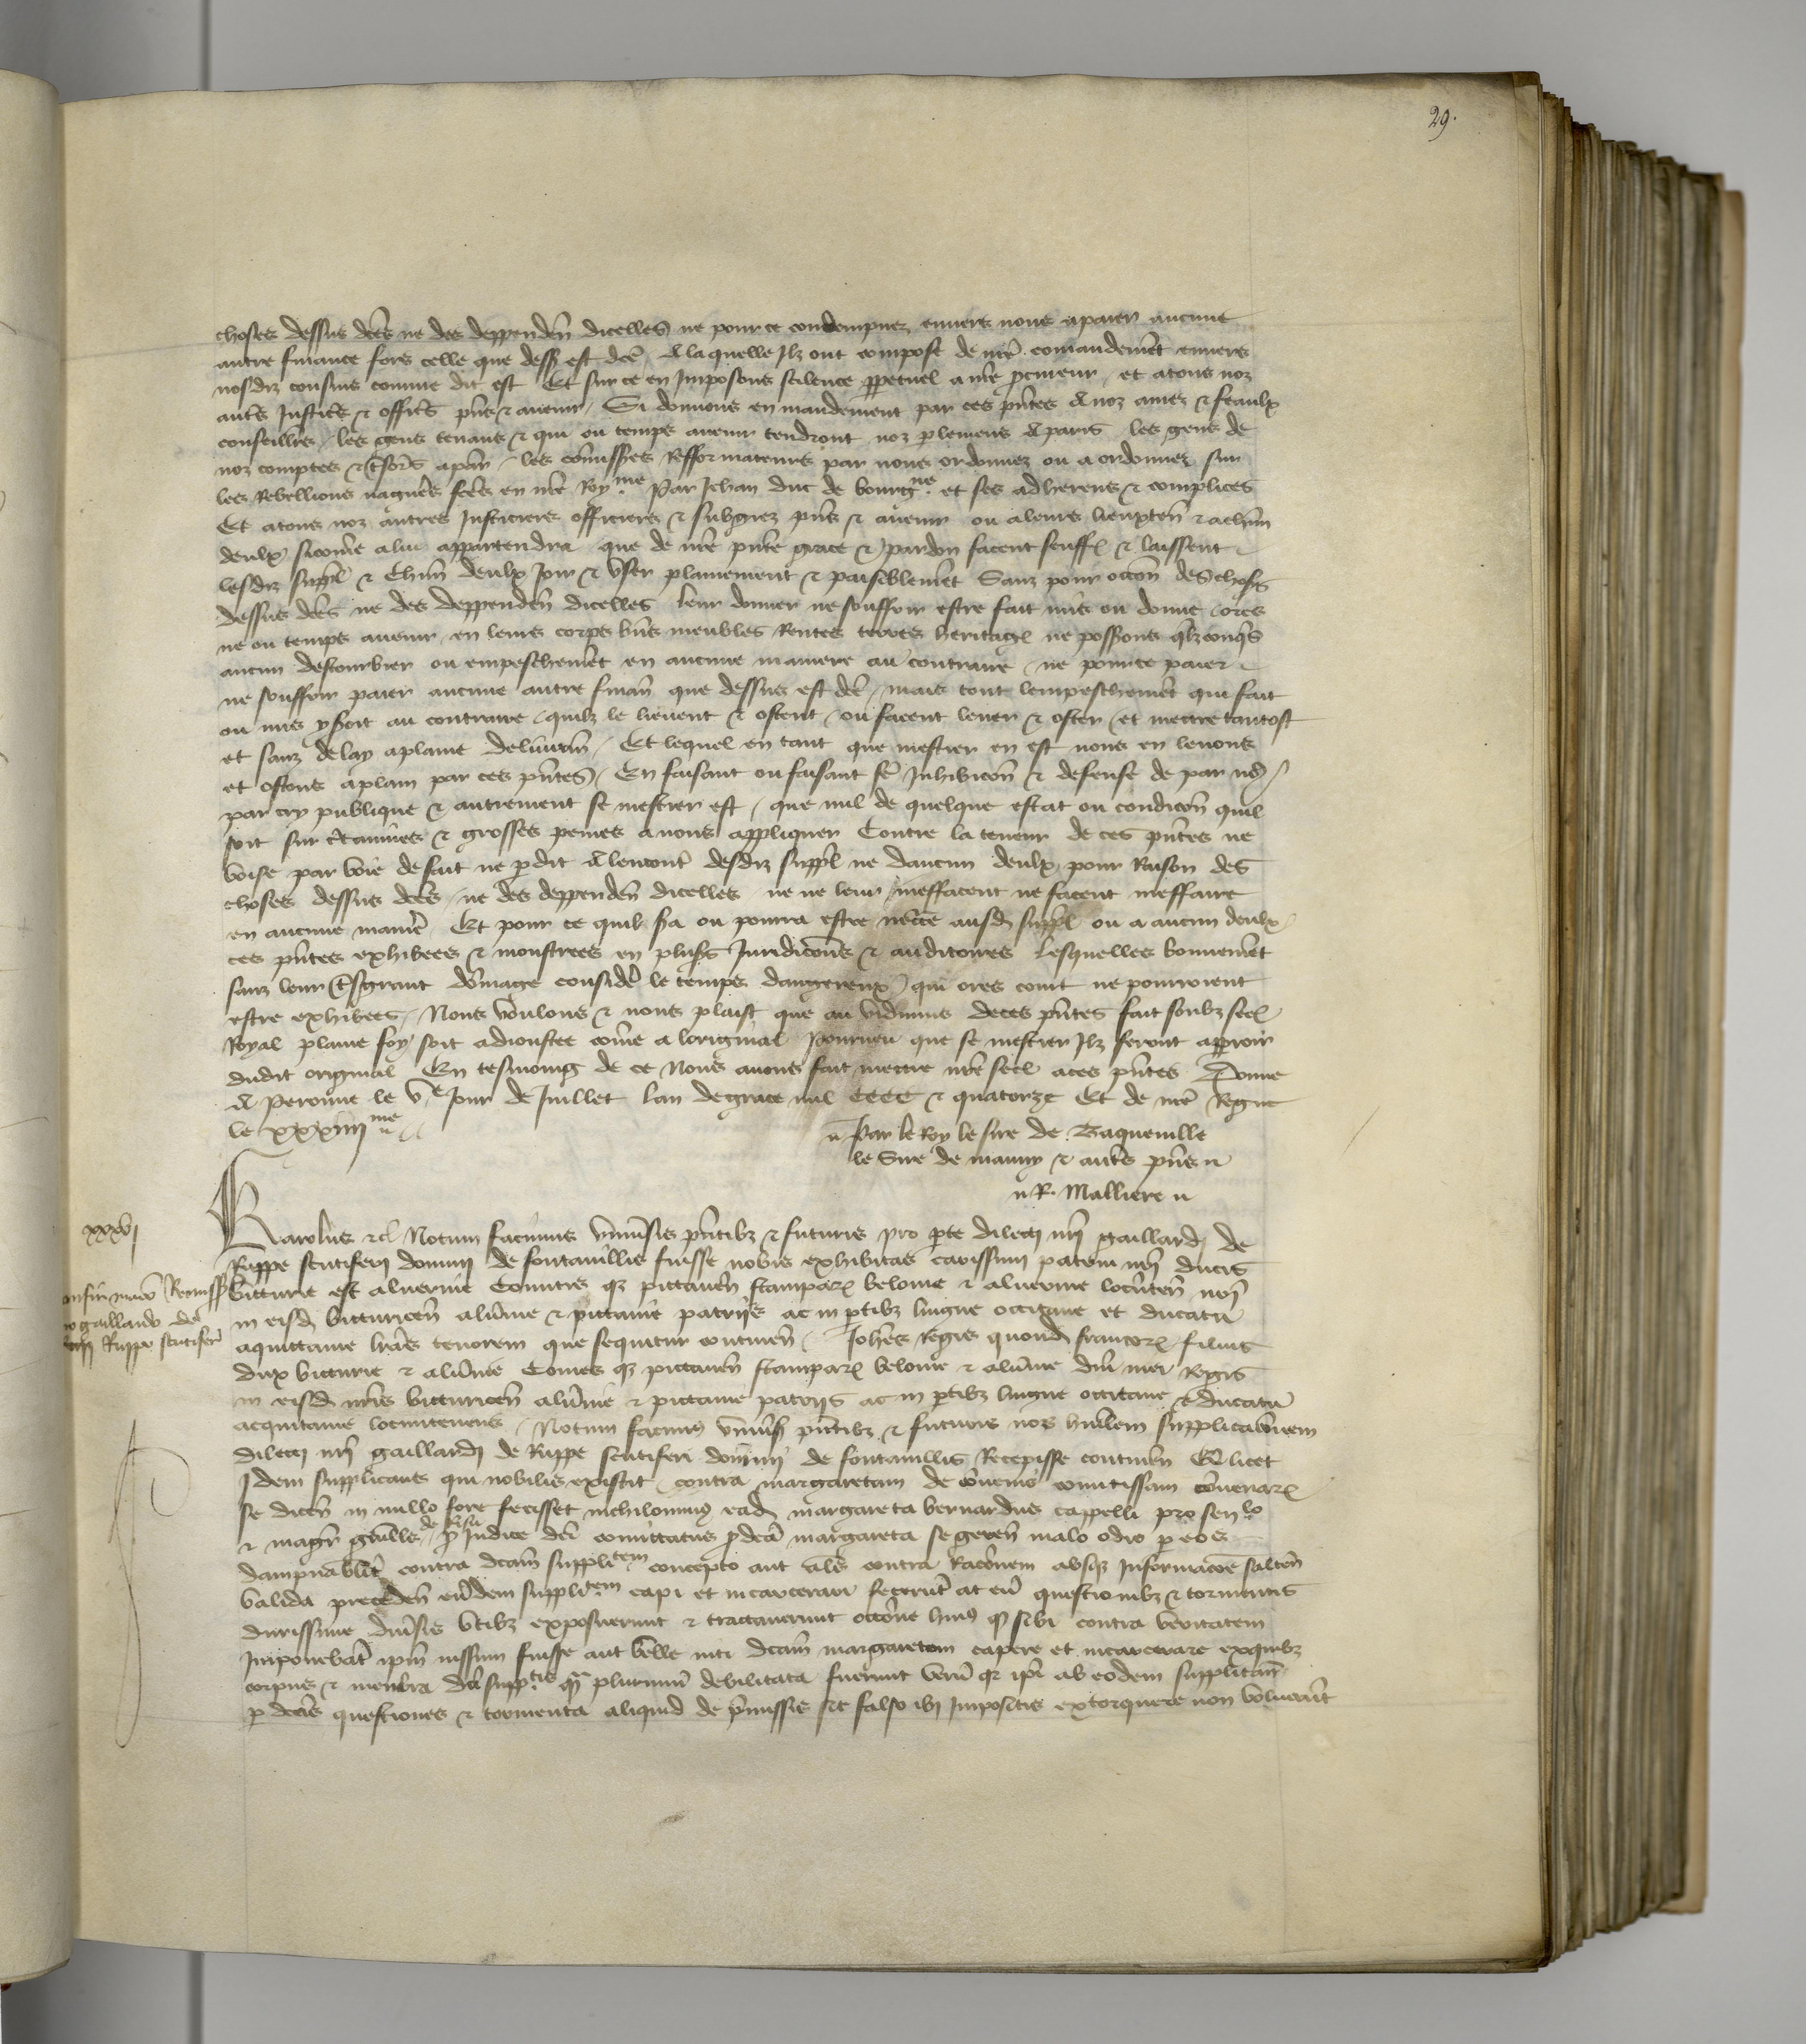 29.
choses dessus dcēs ne des deppendēn dicelles ne pour ce condempnez envers nous a paier aucune
autre finance fors celle que dess est dcē / A laquelle Ilz ont compose de nrē comandemēt envers
nosdiz cousins comme dit est Et sur ce en Imposons scilence ppetuel a nrē pcureur / et a tous noz
autrēs Justicēs & officēs pnŝ & avenir / Si donnons en mandement par ces pntes A noz amez & feaulx
conseillrēs / les gens tenans & qui ou temps avenir tendront noz plemens A paris les gens de
noz comptes & tsorŝ a parīs / les comissrēs Refformateurs par nous ordonnez ou a ordonner sur
les Rebellions naguerēs fcēs en nrē Roy.me Par Jehan duc de bourg.ne et ses adherens & complices
Et a tous noz autres Justiciers officiers & subgiez pnŝ & avenir ou a leurs lieuxtenŝ & a chūn
deulx sicomē a lui appartendra que de nrē pntē grace & pardon facent seuffr & laissent
lesdiz suppl & Chūn deulx Joir & user plainement & paisiblemēt Sanz pour occōn des choses
dessus dcēs ne des deppendēn dicelles leur donner ne souffrir estre fait mis ou donne / ores
ne ou temps avenir en leurs corps bnŝ meubles Rentes terres heritages ne possessions qlzconqs
aucun destourbier ou empeschemēt en aucune maniere au contraire / ne pour ce paier
ne souffrir paier aucune autre finan̄ que dessus est dcē / mais tout lempeschemēt qui fait
ou mis y soit au contraire / quilz le lievent & ostent / ou facent lever & oster / et mettre tantost
et sanz delay a plaine delivran̄ / Et lequel en tant que mestier en est nous en levons
et ostons a plain par ces pntēs / En faisant ou faisant fē Inhibicōn & defense de par noꝰ
par cry publique & autrement se mestier est / que nul de quelque estat ou condicōn quil
soit sur certaines & grosses peines a nous appliquer Contre la teneur de ces pntes ne
voise par voie de fait ne p dit A lencontē desdiz suppl ne daucun deulx pour Raison des
choses dessus dcēs / ne des deppendēn dicelles / ne ne leur meffacent ne facent meffaire
en aucune manierē Et pour ce quil sa ou pourra estre neccē ausd suppl ou a aucun deulx
ces pntes exhibees & monstrees en plusrŝ Juridicōns & auditoires lesquelles bonnemēt
sanz leur tsgrant domage considerē le temps dangereux qui ores court ne pourroient
estre exhibees / Nous voulons & nous plaist que au vidimus de ces pntes fait soubz seel
Royal plaine foy soit adioustee comē a loriginal Pourveu que se mestier Ilz feront apparoir
dudit original En tesmoing de ce Nous avons fait mettre nrē seel a ces pntēs Donne
A Peronne le ve Jour de Juillet lan de grace mil CCCC & quatorze Et de nrē Regne
le xxxiiii me
Par le Roy le sire de Baqueville
le Sire de mauny & autēs pnŝ
R. Malliere
xxxvj
Karolus &cl Notum facimus universis pntibz & futuris pro pte dilecti nrī gaillardi de
Ruppe scutiferi domini de fontanillis fuisse nobis exhibitas carissimi patrui nrī ducis
Bitturie et alvernie Comitis qz pictaven̄ stamparz bolonie & alvernie locutēn nrī
in eisd bitturicen̄ alvnie & pictavie patriis ac in ptibz lingue occitane et ducatu
aquittanie lrās tenorem que sequitur continen̄ / Johes Regis quond francorz filius
dux bitturie & alvnie Comes qz pictaven̄ stamparz bolonie & alvnie dnī mei Regis
in eisd nrīs bitturicen̄ alvnie & pictavie patriis ac in ptibz lingue occitane & ducatu
acquitanie locumtenens / Notum facimus univsis pntibz & futuris nos humilem supplicacōnem
dilecti nrī gaillardi de Ruppe scutiferi domini de fontanillis Recepisse continen̄ Q licet
Idem supplicans qui nobilis existit contra margaretam de convenis comitissam convenarz
se dicen̄ in nullo fore fecisset nichilominus ead margareta bernardus cappelli pro sen.lo
& magr̄ guills de ... p Judice dcī comittatus p dcā margareta se geren̄ malo odio p eos
dampnabiliter contra dcām suppli.tem concepto aut alŝ contra Racōnem absqz Informacōe saltēm
valida preceden̄ eundem suppli.tem capi et incarcerari fecerūt ac eū questionibz & tormentis
durissime diversis vicibz exposuerunt & tractaverunt occōne huius qd sibi contra veritatem
Imponebāt ipm nissum fuisse aut velle niti dcām margaretam capere et incarcerare ex quibz
corpus & membra dcī supp.tis qm plurimū debilitata fuerunt verū qz ipī ab eodem supplican̄
p dcās questiones & tormenta aliquid de pmissis sic falso ibi Impositis extorquere non voluerūt
Confirmacō Remiss
pro gaillardo de
Ruppe scutiferi